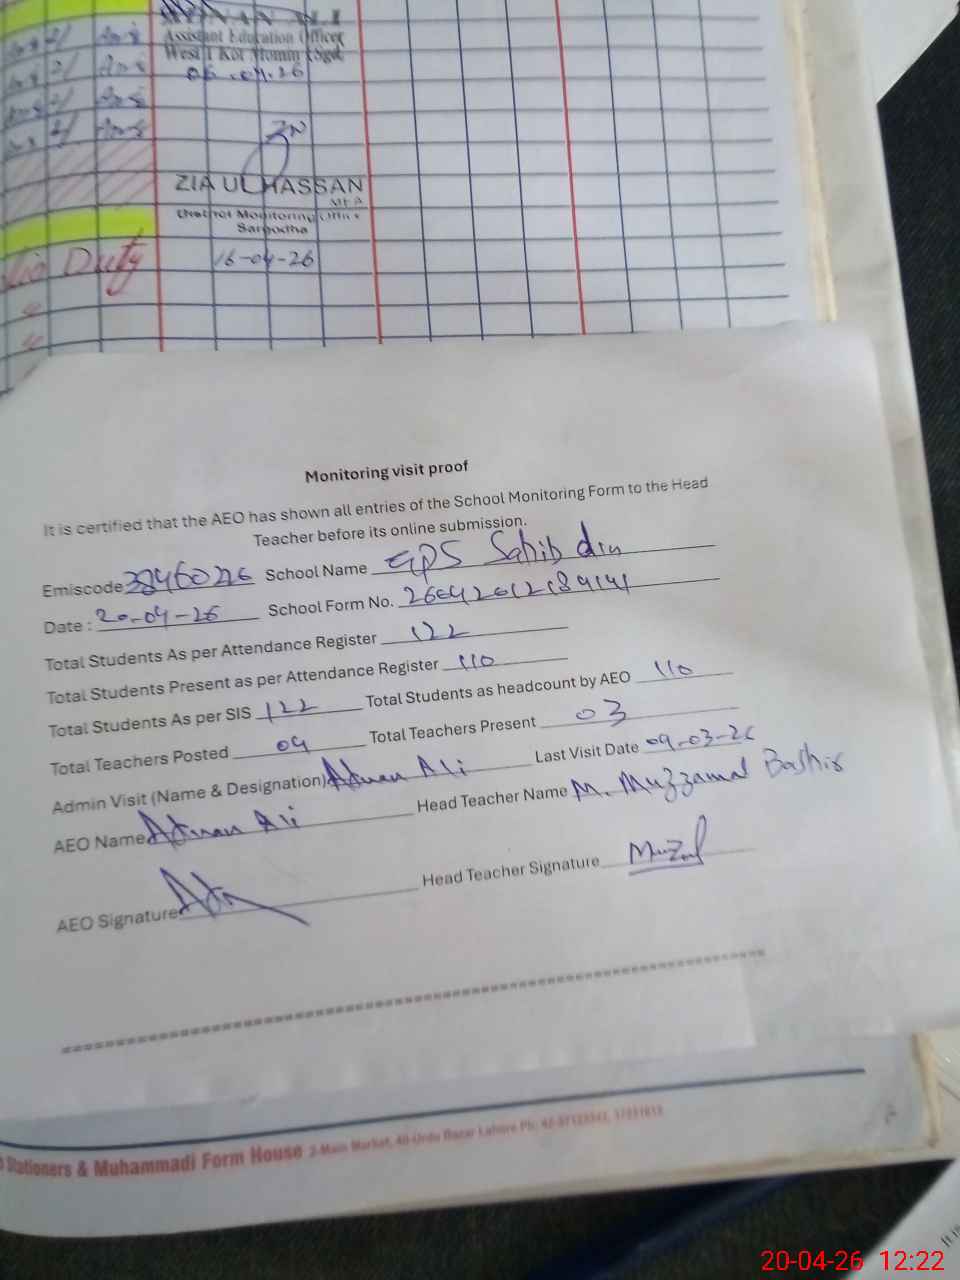 Assistant Education Officer
West 1 Kot Momin (Sgd)
06.04.26
ZIA UL HASSAN
MEA
District Monitoring Office
Sargodha
Duty 16-04-26
Monitoring visit proof
It is certified that the AEO has shown all entries of the School Monitoring Form to the Head
Teacher before its online submission.
Emiscode 38460226 School Name GPS Sahib din
Date : 20-04-26 School Form No.
Total Students As per Attendance Register 122
Total Students Present as per Attendance Register 110
Total Students As per SIS 122 Total Students as headcount by AEO 110
Total Teachers Posted 04 Total Teachers Present 03
Admin Visit (Name & Designation) Adnan Ali Last Visit Date 09-03-26
AEO Name Adnan Ali Head Teacher Name M. Muzzamal Bashir
AEO Signature Head Teacher Signature
Stationers & Muhammadi Form House 2-Main Market, 40-Urdu Bazar Lahore Ph:
20-04-26 12:22